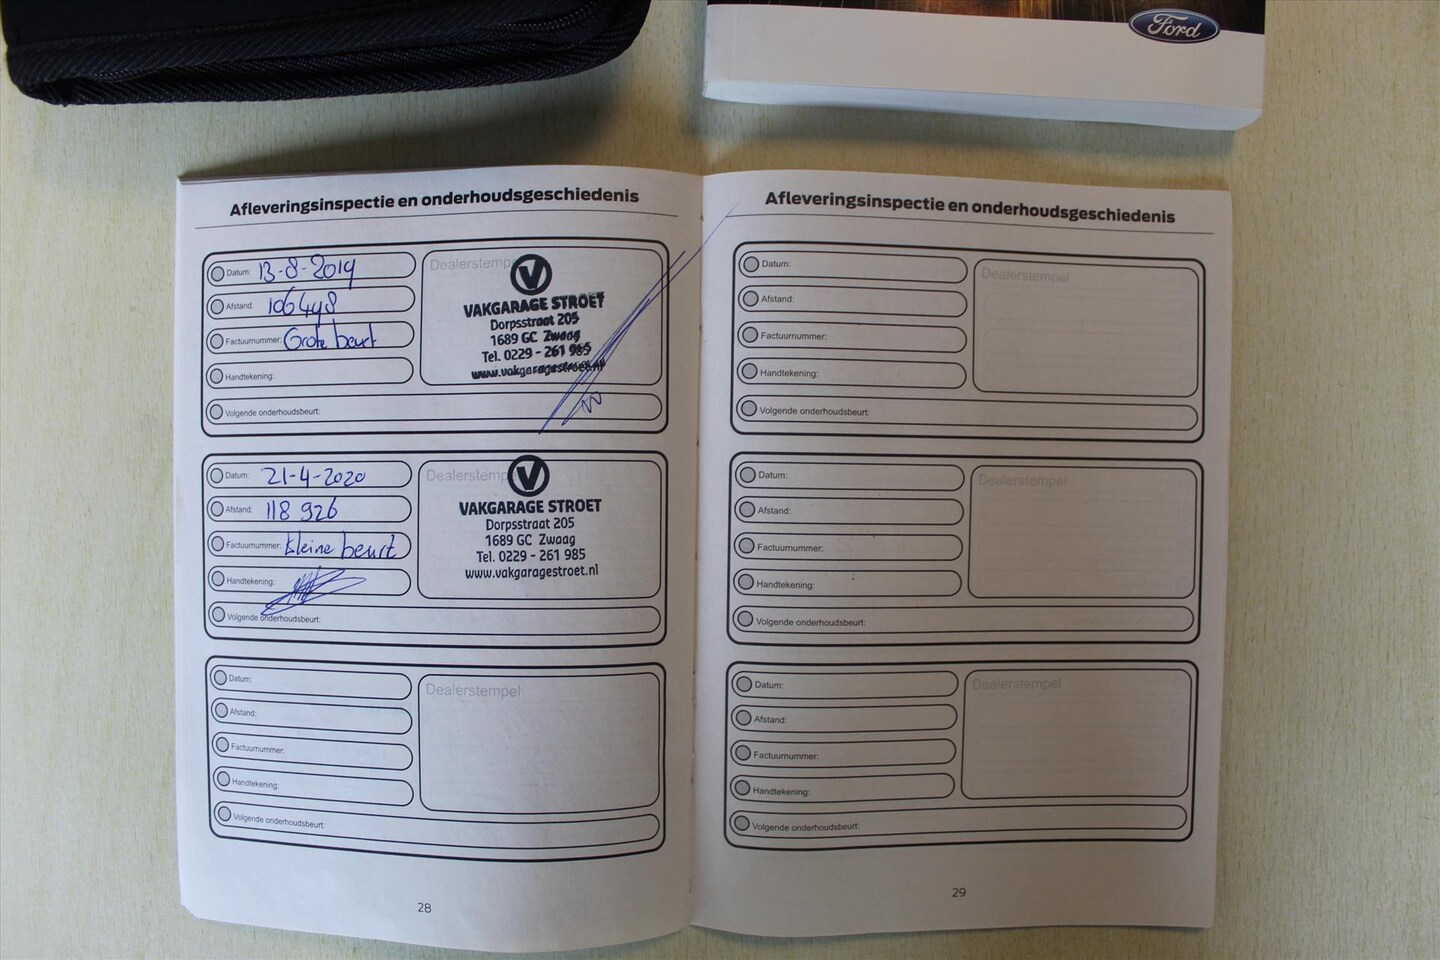 Ford
Afleveringsinspectie en onderhoudsgeschiedenis
Datum: 13-8-2019
Afstand: 106498
Factuurnummer: Grote beurt
Handtekening:
Volgende onderhoudsbeurt:
Dealerstempel
VAKGARAGE STROET
Dorpsstraat 205
1689 GC Zwaag
Tel. 0229 - 261 985
www.vakgaragestroet.nl
Datum: 21-4-2020
Afstand: 118 926
Factuurnummer: kleine beurt
Handtekening:
Volgende onderhoudsbeurt:
Dealerstempel
VAKGARAGE STROET
Dorpsstraat 205
1689 GC Zwaag
Tel. 0229 - 261 985
www.vakgaragestroet.nl
Datum:
Afstand:
Factuurnummer:
Handtekening:
Volgende onderhoudsbeurt:
Dealerstempel
28
Afleveringsinspectie en onderhoudsgeschiedenis
Datum:
Afstand:
Factuurnummer:
Handtekening:
Volgende onderhoudsbeurt:
Dealerstempel
Datum:
Afstand:
Factuurnummer:
Handtekening:
Volgende onderhoudsbeurt:
Dealerstempel
Datum:
Afstand:
Factuurnummer:
Handtekening:
Volgende onderhoudsbeurt:
Dealerstempel
29